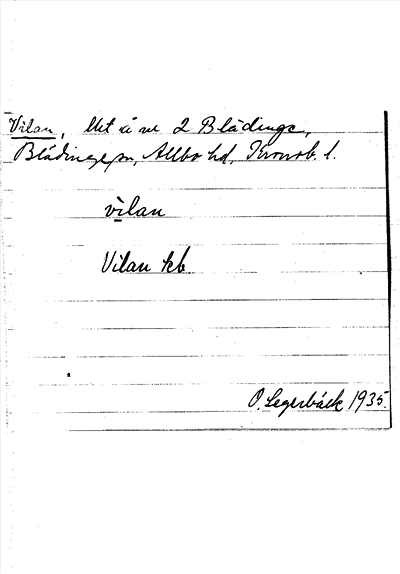 Vilan, Utt å nr 2 Blädinge,
Blädinge sn, Allbo hd, Kronob. l.
vilan
Vilan kb.
O. Legerbäck 1935.